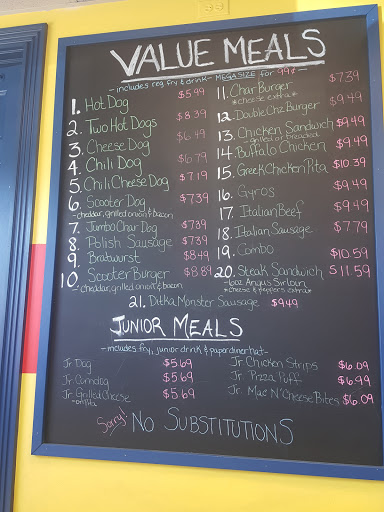 VALUE MEALS
-includes reg. fry & drink- MEGASIZE for 99¢-
1. Hot Dog $5.99
2. Two Hot Dogs $8.39
3. Cheese Dog $6.49
4. Chili Dog $6.79
5. Chili Cheese Dog $7.19
6. Scooter Dog $7.39
-cheddar, grilled onion & bacon
7. Jumbo Char Dog $7.39
8. Polish Sausage $7.39
9. Bratwurst $8.49
10. Scooter Burger $8.89
-cheddar, grilled onion & bacon
11. Char Burger $7.39
*cheese extra*
12. Double Chz Burger $9.49
13. Chicken Sandwich $9.49
-Grilled or Breaded
14. Buffalo Chicken $9.49
15. Greek Chicken Pita $10.39
16. Gyros $9.49
17. Italian Beef $9.49
18. Italian Sausage $7.79
19. Combo $10.59
20. Steak Sandwich $11.59
-6oz Angus Sirloin
*cheese & peppers extra*
21. Ditka Monster Sausage $9.49
JUNIOR MEALS
-includes fry, junior drink & paper diner hat-
Jr. Dog $5.69
Jr. Corndog $5.69
Jr. Grilled Cheese $5.69
-on Pita
Jr. Chicken Strips $6.09
Jr. Pizza Puff $6.99
Jr. Mac N' Cheese Bites $6.09
Sorry! NO SUBSTITUTIONS